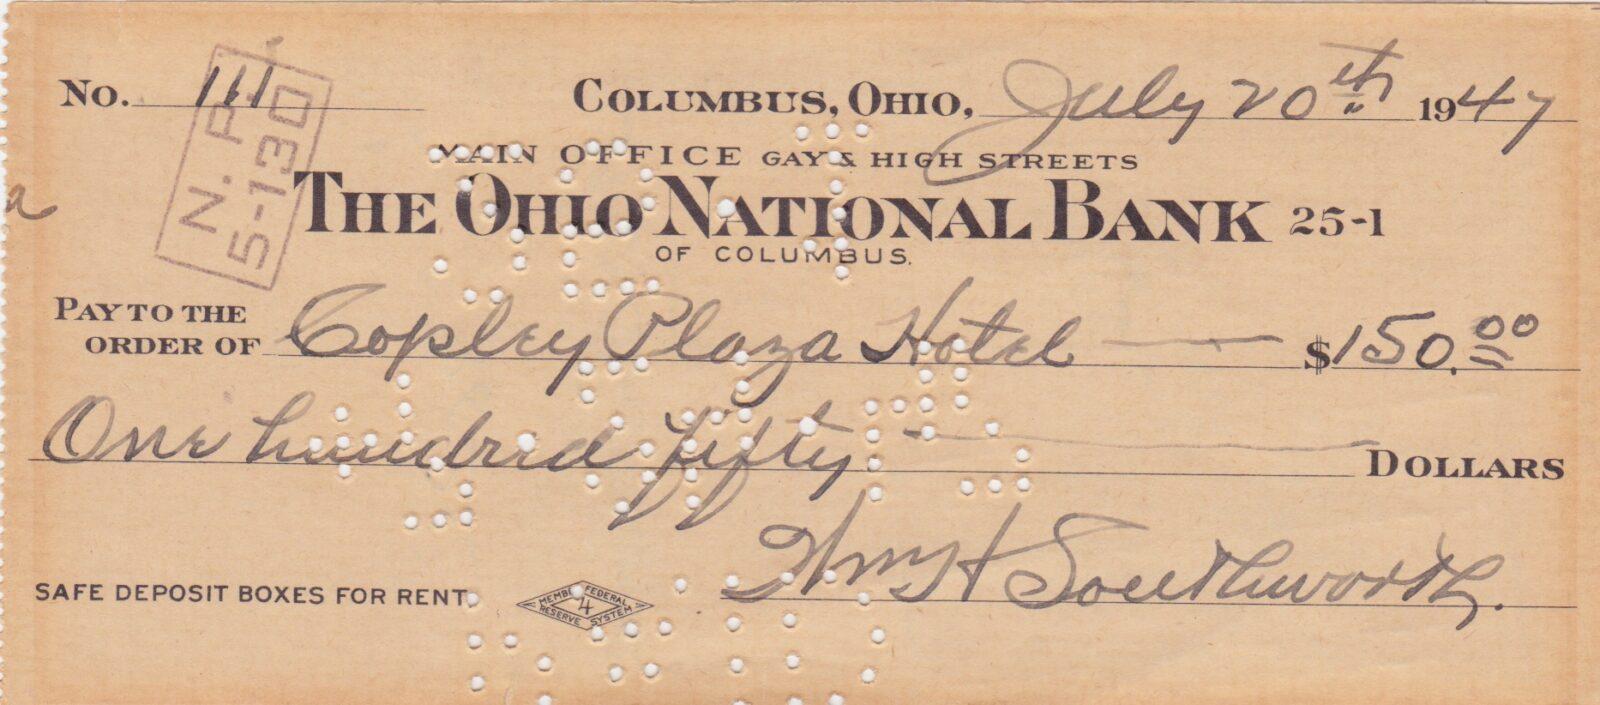 No. 111 COLUMBUS, OHIO, July 20th 1947
N.P.
5-130
MAIN OFFICE GAY & HIGH STREETS
THE OHIO NATIONAL BANK 25-1
OF COLUMBUS.
a
PAY TO THE
ORDER OF Copley Plaza Hotel — $150.00
One hundred fifty — DOLLARS
Wm H Southworth.
SAFE DEPOSIT BOXES FOR RENT.
MEMBER FEDERAL
4
RESERVE SYSTEM